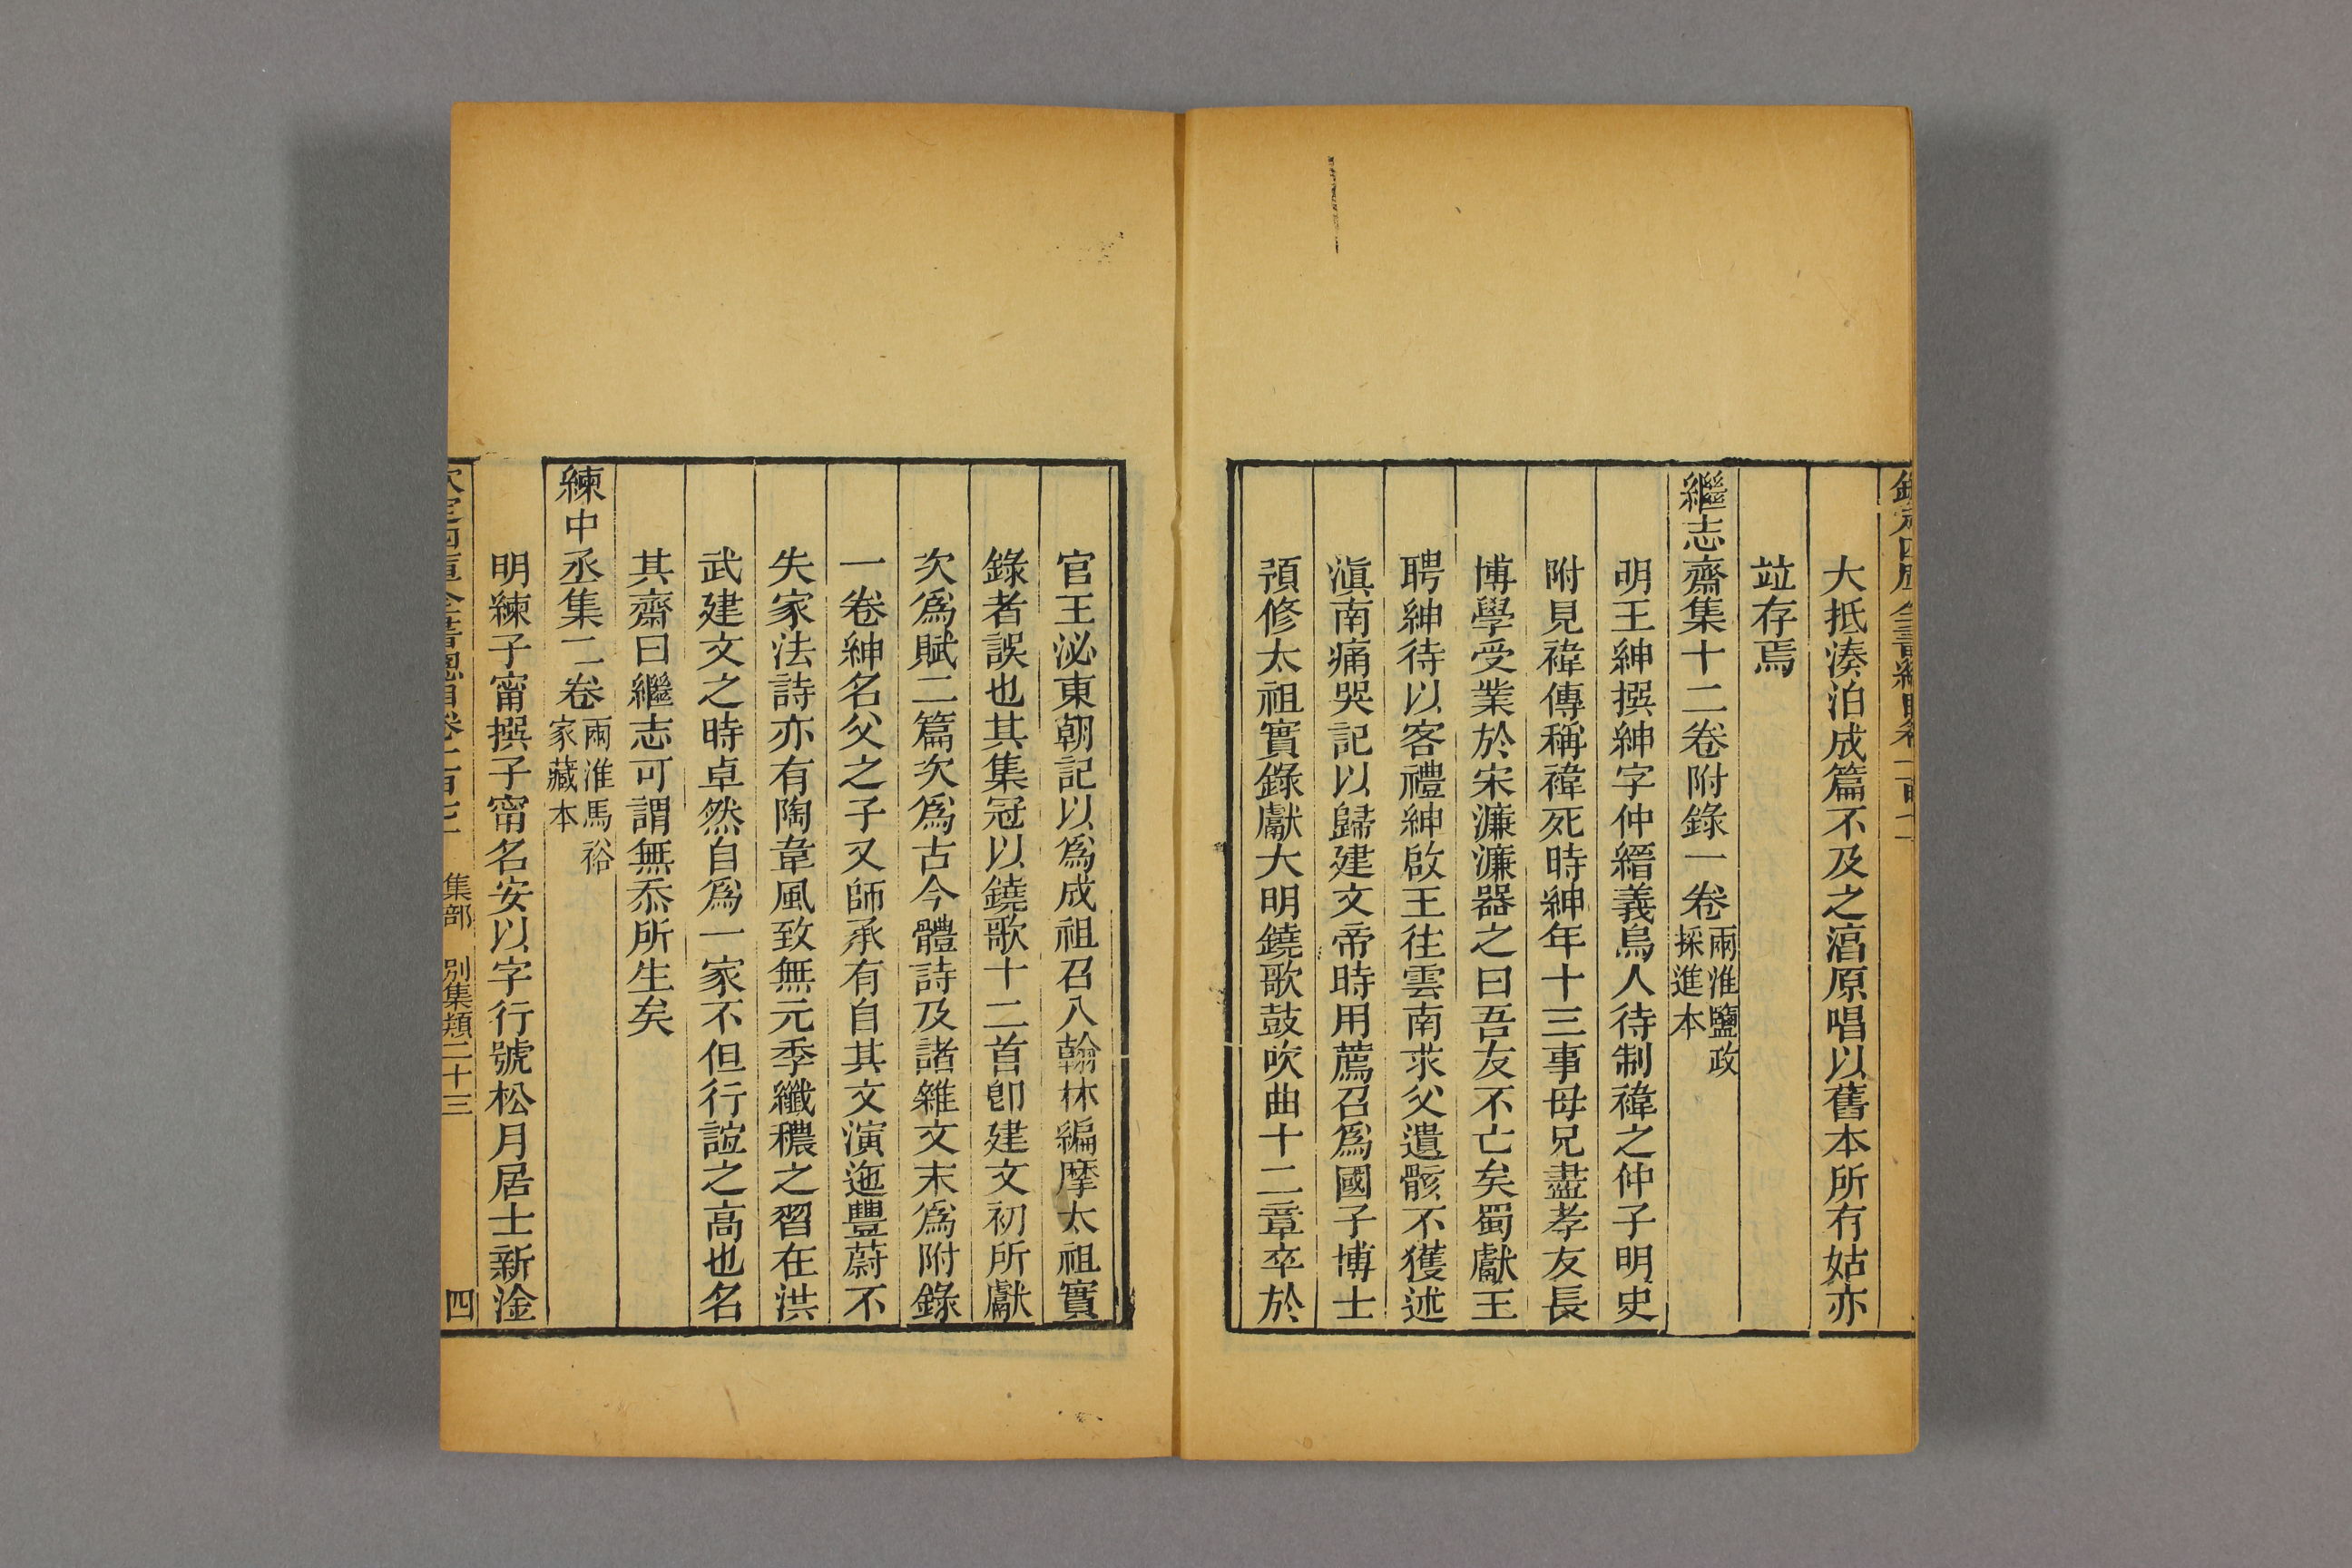 大抵湊泊成篇不及之湻原唱以舊本所有姑亦
竝存焉
繼志齋集十二卷附錄一卷兩淮鹽政採進本
明王紳撰紳字仲縉義烏人待制禕之仲子明史
附見禕傳稱禕死時紳年十三事母兄盡孝友長
博學受業於宋濂濂器之曰吾友不亡矣蜀獻王
聘紳待以客禮紳啟王往雲南求父遺骸不獲述
滇南痛哭記以歸建文帝時用薦召爲國子博士
預修太祖實錄獻大明鐃歌鼓吹曲十二章卒於
官王泌東朝記以爲成祖召入翰林編摩太祖實
錄者誤也其集冠以鐃歌十二首卽建文初所獻
次爲賦二篇次爲古今體詩及諸雜文末爲附錄
一卷紳名父之子又師承有自其文演迤豐蔚不
失家法詩亦有陶韋風致無元季纖穠之習在洪
武建文之時卓然自爲一家不但行誼之高也名
其齋曰繼志可謂無忝所生矣
練中丞集二卷兩淮馬裕家藏本
明練子甯撰子甯名安以字行號松月居士新淦
欽定四庫全書總目卷一百七十 集部 別集類二十三 四